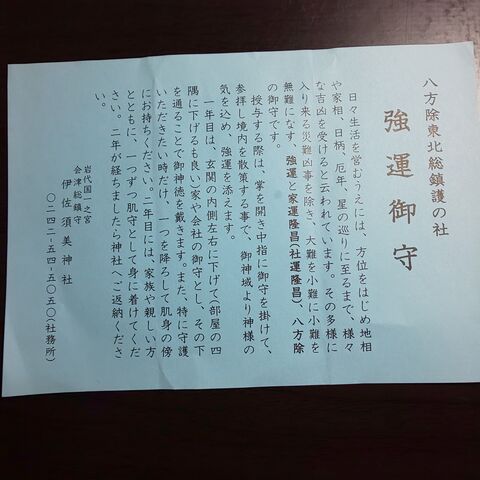 八方除東北総鎮護の社
強運御守
日々生活を営むうえには、方位をはじめ地相
や家相、日柄、厄年、星の巡りに至るまで、様々
な吉凶を受けると云われています。その多様に
入り来る災難凶事を除き、大難を小難に小難を
無難になす、強運と家運隆昌（社運隆昌）、八方除
の御守です。
授与する際は、掌を開き中指に御守を掛けて、
参拝し境内を散策する事で、御神域より神様の
気を込め、強運を添えます。
一年目は、玄関の内側左右に下げて（部屋の四
隅に下げるも良い）家や会社の御守とし、その下
を通ることで御神徳を戴きます。また、特に守護
いただきたい時だけ、一つを降ろして肌身の傍
にお持ちください。二年目には、家族や親しい方
とともに、一つずつ肌守として身に着けてくだ
さい。二年が経ちましたら神社へご返納くださ
い。
岩代国一之宮
会津総鎮守
伊佐須美神社
〇二四二-五四-五〇五〇（社務所）